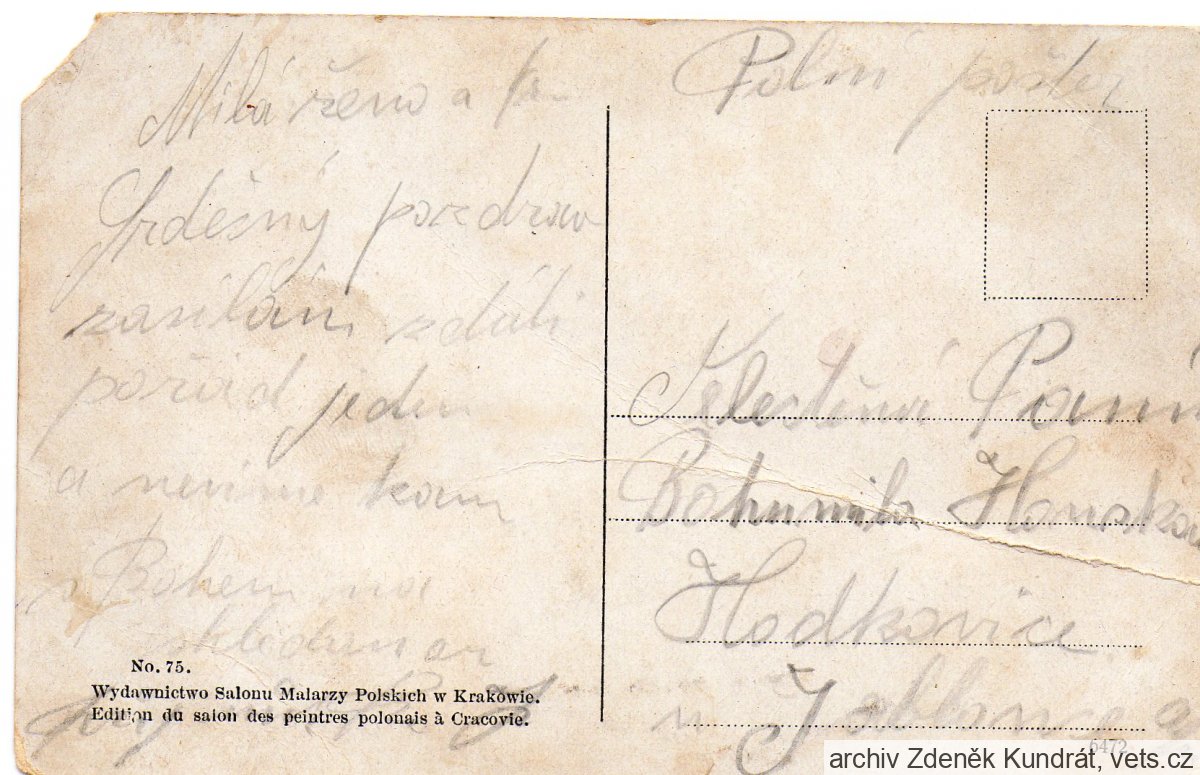 Milá ženo a
Srdečný pozdrav
zasílám z dáli
pořád jeden
a nevíme kam
s Bohem na
shledanou
No. 75.
Wydawnictwo Salonu Malarzy Polskich w Krakowie.
Edition du salon des peintres polonais à Cracovie.
Polní pošta
Paní
Bohumila
Hodkovice
u
6472
archiv Zdeněk Kundrát, vets.cz